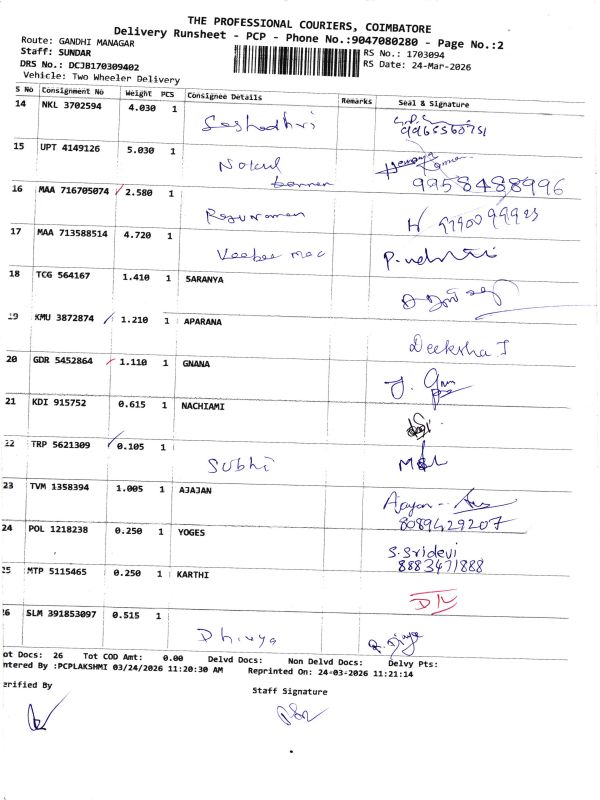 THE PROFESSIONAL COURIERS, COIMBATORE
Delivery Runsheet - PCP - Phone No.:9047080280 - Page No.:2
Route: GANDHI MANAGAR
RS No.: 1703094
Staff: SUNDAR
RS Date: 24-Mar-2026
DRS No.: DCJB170309402
Vehicle: Two Wheeler Delivery
S No Consignment No Weight PCS Consignee Details Remarks Seal & Signature
14 NKL 3702594 4.030 1 Seshadhri
9965560751
15 UPT 4149126 5.030 1 Nakul
9958488996
16 MAA 716705074 2.580 1 Raguraman
17 MAA 713588514 4.720 1
18 TCG 564167 1.410 1 SARANYA
19 KMU 3872874 1.210 1 APARANA
Deeksha J
20 GDR 5452864 1.110 1 GNANA
21 KDI 915752 0.615 1 NACHIAMI
22 TRP 5621309 0.105 1 Subhi
23 TVM 1358394 1.005 1 AJAJAN
8089429207
24 POL 1218238 0.250 1 YOGES S.Sridevi
8883471888
25 MTP 5115465 0.250 1 KARTHI
26 SLM 391853097 0.515 1 Dhivya
ot Docs: 26 Tot COD Amt: 0.00 Delvd Docs: Non Delvd Docs: Delvy Pts:
ntered By :PCPLAKSHMI 03/24/2026 11:20:30 AM Reprinted On: 24-03-2026 11:21:14
erified By
Staff Signature